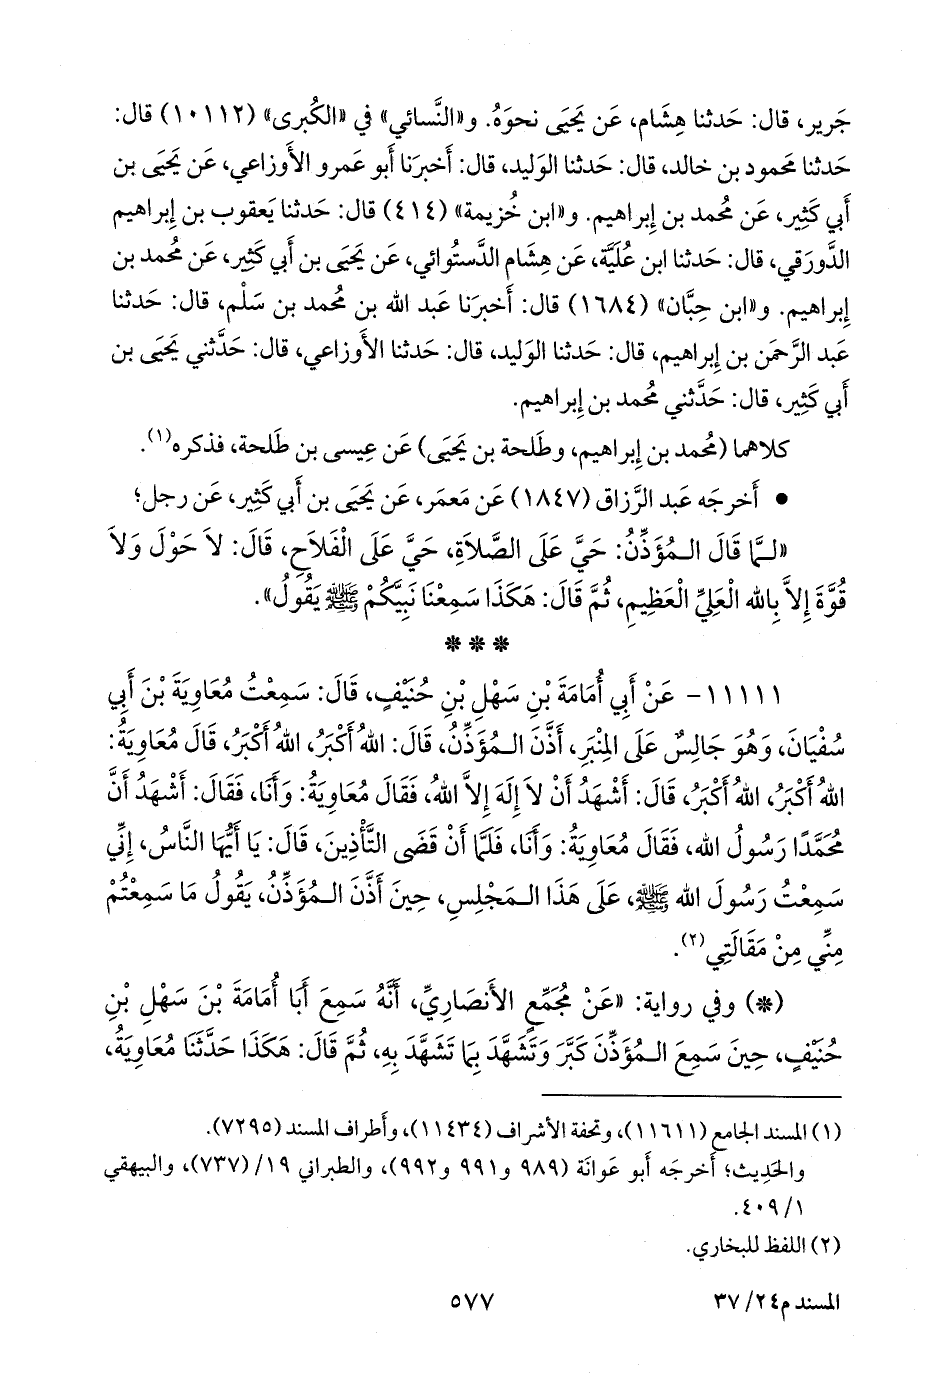 جَرير، قال: حَدثنا هِشَام، عَن يَحيَى نحوَهُ. و«النَّسائي» في «الكُبرى» (١٠١١٢) قال:
حَدثنا محمود بن خالد، قال: حَدثنا الوَليد، قال: أَخبرَنا أَبو عمرو الأَوزاعي، عَن يَحيَى بن
أَبي كَثِير، عَن مُحمد بن إِبراهيم. و«ابن خُزيمة» (٤١٤) قال: حَدثنا يَعقوب بن إِبراهيم
الدَّورَقي، قال: حَدثنا ابن عُلَيَّة، عَن هِشام الدَّستُوائي، عَن يَحيَى بن أَبي كَثِير، عَن مُحمد بن
إِبراهيم. و«ابن حِبَّان» (١٦٨٤) قال: أَخبرَنا عَبد الله بن مُحمد بن سَلْم، قال: حَدثنا
عَبد الرَّحمَن بن إِبراهيم، قال: حَدثنا الوَليد، قال: حَدثنا الأَوزاعي، قال: حَدَّثني يَحيَى بن
أَبي كَثِير، قال: حَدَّثني مُحمد بن إِبراهيم.
كلاهما (مُحمد بن إِبراهيم، وطَلحة بن يَحيَى) عَن عِيسى بن طَلحة، فذكره(١).
• أَخرجَه عَبد الرَّزاق (١٨٤٧) عَن مَعمَر، عَن يَحيَى بن أَبي كَثِير، عَن رجل؛
«لـمَّا قَالَ الـمُؤَذِّنُ: حَيَّ عَلَى الصَّلاَةِ، حَيَّ عَلَى الْفَلاَحِ، قَالَ: لاَ حَوْلَ وَلاَ
قُوَّةَ إِلاَّ بِالله الْعَلِيِّ الْعَظِيمِ، ثُمَّ قَالَ: هَكَذَا سَمِعْنَا نَبِيَّكُمْ ﷺ يَقُولُ».
* * *
١١١١١- عَنْ أَبِي أُمَامَةَ بْنِ سَهْلِ بْنِ حُنَيْفٍ، قَالَ: سَمِعْتُ مُعَاوِيَةَ بْنَ أَبِي
سُفْيَانَ، وَهُوَ جَالِسٌ عَلَى المِنْبَرِ، أَذَّنَ الـمُؤَذِّنُ، قَالَ: اللهُ أَكْبَرُ، اللهُ أَكْبَرُ، قَالَ مُعَاوِيَةُ:
اللهُ أَكْبَرُ، اللهُ أَكْبَرُ، قَالَ: أَشْهَدُ أَنْ لاَ إِلَهَ إِلاَّ اللهُ، فَقَالَ مُعَاوِيَةُ: وَأَنَا، فَقَالَ: أَشْهَدُ أَنَّ
مُحَمَّدًا رَسُولُ الله، فَقَالَ مُعَاوِيَةُ: وَأَنَا، فَلَمَّا أَنْ قَضَى التَّأْذِينَ، قَالَ: يَا أَيُّهَا النَّاسُ، إِنِّي
سَمِعْتُ رَسُولَ الله ﷺ، عَلَى هَذَا الـمَجْلِسِ، حِينَ أَذَّنَ الـمُؤَذِّنُ، يَقُولُ مَا سَمِعْتُمْ
مِنِّي مِنْ مَقَالَتِي(٢).
(*) وفي رواية: «عَنْ مُجَمِّعٍ الأَنصَارِيِّ، أَنَّهُ سَمِعَ أَبَا أُمَامَةَ بْنَ سَهْلِ بْنِ
حُنَيْفٍ، حِينَ سَمِعَ الـمُؤَذِّنَ كَبَّرَ وَتَشَهَّدَ بِمَا تَشَهَّدَ بِهِ، ثُمَّ قَالَ: هَكَذَا حَدَّثَنَا مُعَاوِيَةُ،
(١) المسند الجامع (١١٦١١)، وتحفة الأَشراف (١١٤٣٤)، وأَطراف المسند (٧٢٩٥).
والحَدِيث؛ أَخرجَه أَبو عَوانَة (٩٨٩ و٩٩١ و٩٩٢)، والطبراني ١٩/ (٧٣٧)، والبيهقي
١/ ٤٠٩.
(٢) اللفظ للبخاري.
المسند م٢٤/ ٣٧
٥٧٧